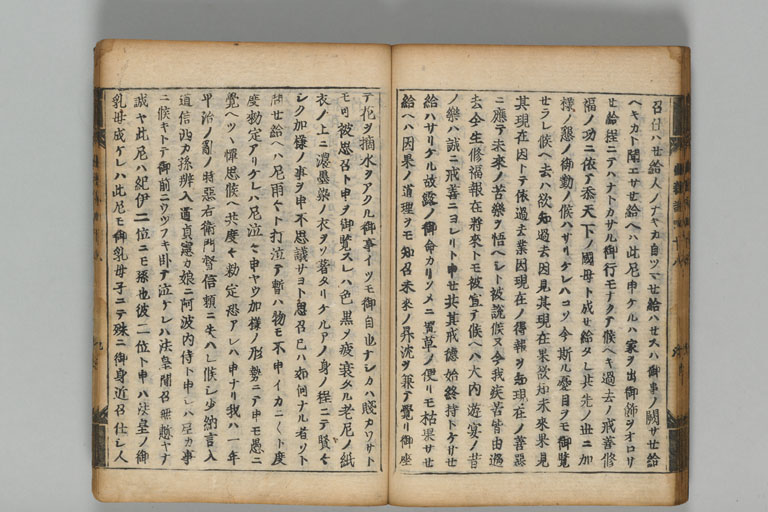 召仕ハせ給人ノナキカ自ツマせ給ハせスハ御事ノ闕サせ給
ヘキカト聞エサせ給ヘハ此尼申ケルハ家ヲ出御餝ヲオロサ
せ給程ニテハナトカサル御行モナクテ候ヘキ過去ノ戒善修
福ノ功ニ依テ忝天下ノ國母ト成せ給タレ共先ノ世ニ加
様ノ懇ノ御勤ノ候ハサリケレハコソ今斯ル憂目ヲモ御覽
せラレ候ヘ去ハ欲知過去因見其現在果欲知未來果見
其現在因トテ依過去業因現在ノ得報ヲ知現在ノ善惡
ニ應テ未來ノ苦樂ヲ悟ヘシト被説候又今我疾苦皆由過
去今生修福報在將來トモ被宣テ候ヘハ大内遊宴ノ昔
ノ樂ハ誠ニ戒善ニヨレリト申せ共其戒德始終持ケリせ
給ハサリケル故露ノ御命カリソメニ置草ノ便リモ枯果サせ
給ヘハ因果ノ道理ヲモ知召未來ノ昇沈ヲ兼テ覺リ御座
テ花ヲ摘水ヲアクル御事イツモ御自也ナシカハ賤カワサト
モ可被思召ト申ヲ御覽スレハ色黒ノ疲衰タル老尼ノ紙
衣ノ上ニ濃墨染ノ衣ヲソ著タリケルアノ身ノ程ニテ賢々
シク加様ノ事ヲ申不思議サヨト思召已ハ如何ナル者ソト
問せ給ヘハ尼雨々ト打泣テ暫ハ物モ不申イカニ〳〵ト度
度勅定アリケレハ尼泣々申ヤウ加様ノ形勢ニテ申モ愚ニ
覺ヘツヽ憚思候ヘ共度々勅定恐アレハ申ナリ我ハ一年
平治ノ亂ノ時惡右衛門督信頼ニ失ハレ候シ少納言入
道信西カ孫辨入道貞憲カ娘ニ阿波内侍ト申レハ尼カ事
ニ候キトテ御前ニウツフキ卧テ泣ケレハ法皇聞召無慙ヤナ
誠ヤ此尼ハ紀伊二位ニモ孫也彼二位ト申ハ法皇ノ御
乳母成ケレハ此尼モ御乳母子ニテ殊ニ御身近召仕シ人